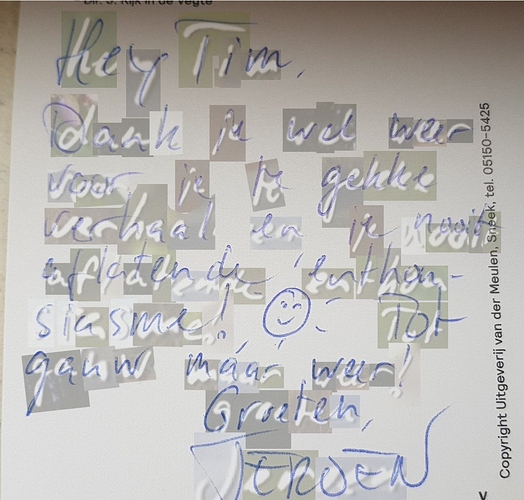 Dir. J. Kijk in de Vegte
Hey Tim,
Dank je wel weer
voor je te gekke
verhaal en je nooit
aflatende enthou-
siasme! Tot
gauw maar weer!
Groeten,
JEROEN
Copyright Uitgeverij van der Meulen, Sneek, tel. 05150-5425